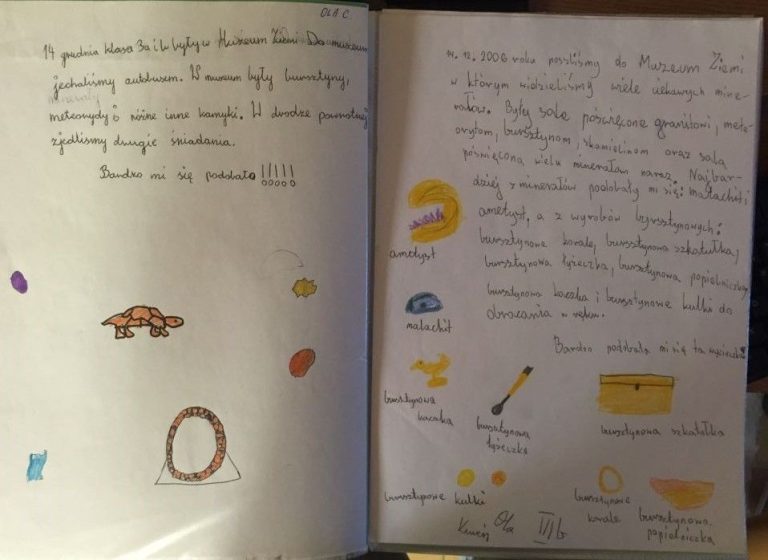 OLA C.
14 grudnia klasa 3a i b były w Muzeum Ziemi Do muzeum
jechaliśmy autobusem. W muzeum były bursztyny,
minerały
meteorydy i różne inne kamyki. W drodze powrotnej
zjedliśmy drugie śniadania.
Bardzo mi się podobało !!!!!
14. 12. 2006 roku poszliśmy do Muzeum Ziemi
w którym widzieliśmy wiele ciekawych mine-
rałów. Były sale poświęcone granitowi, mete-
orytom, bursztynom, skamielinom oraz sala
poświęcona wielu minerałom naraz. Najbar-
dziej z minerałów podobały mi się: małachit i
ametyst, a z wyrobów bursztynowych:
bursztynowe korale, bursztynowa szkatułka,
bursztynowa łyżeczka, bursztynowa popielniczka,
bursztynowa kaczka i bursztynowe kulki do
obracania w ręku.
Bardzo podobała mi się ta wycieczka
ametyst
malachit
bursztynowa
kaczka
bursztynowa
łyżeczka
bursztynowa szkatułka
bursztynowe kulki
bursztynowe
korale
bursztynowa
popielniczka
Ola
III b